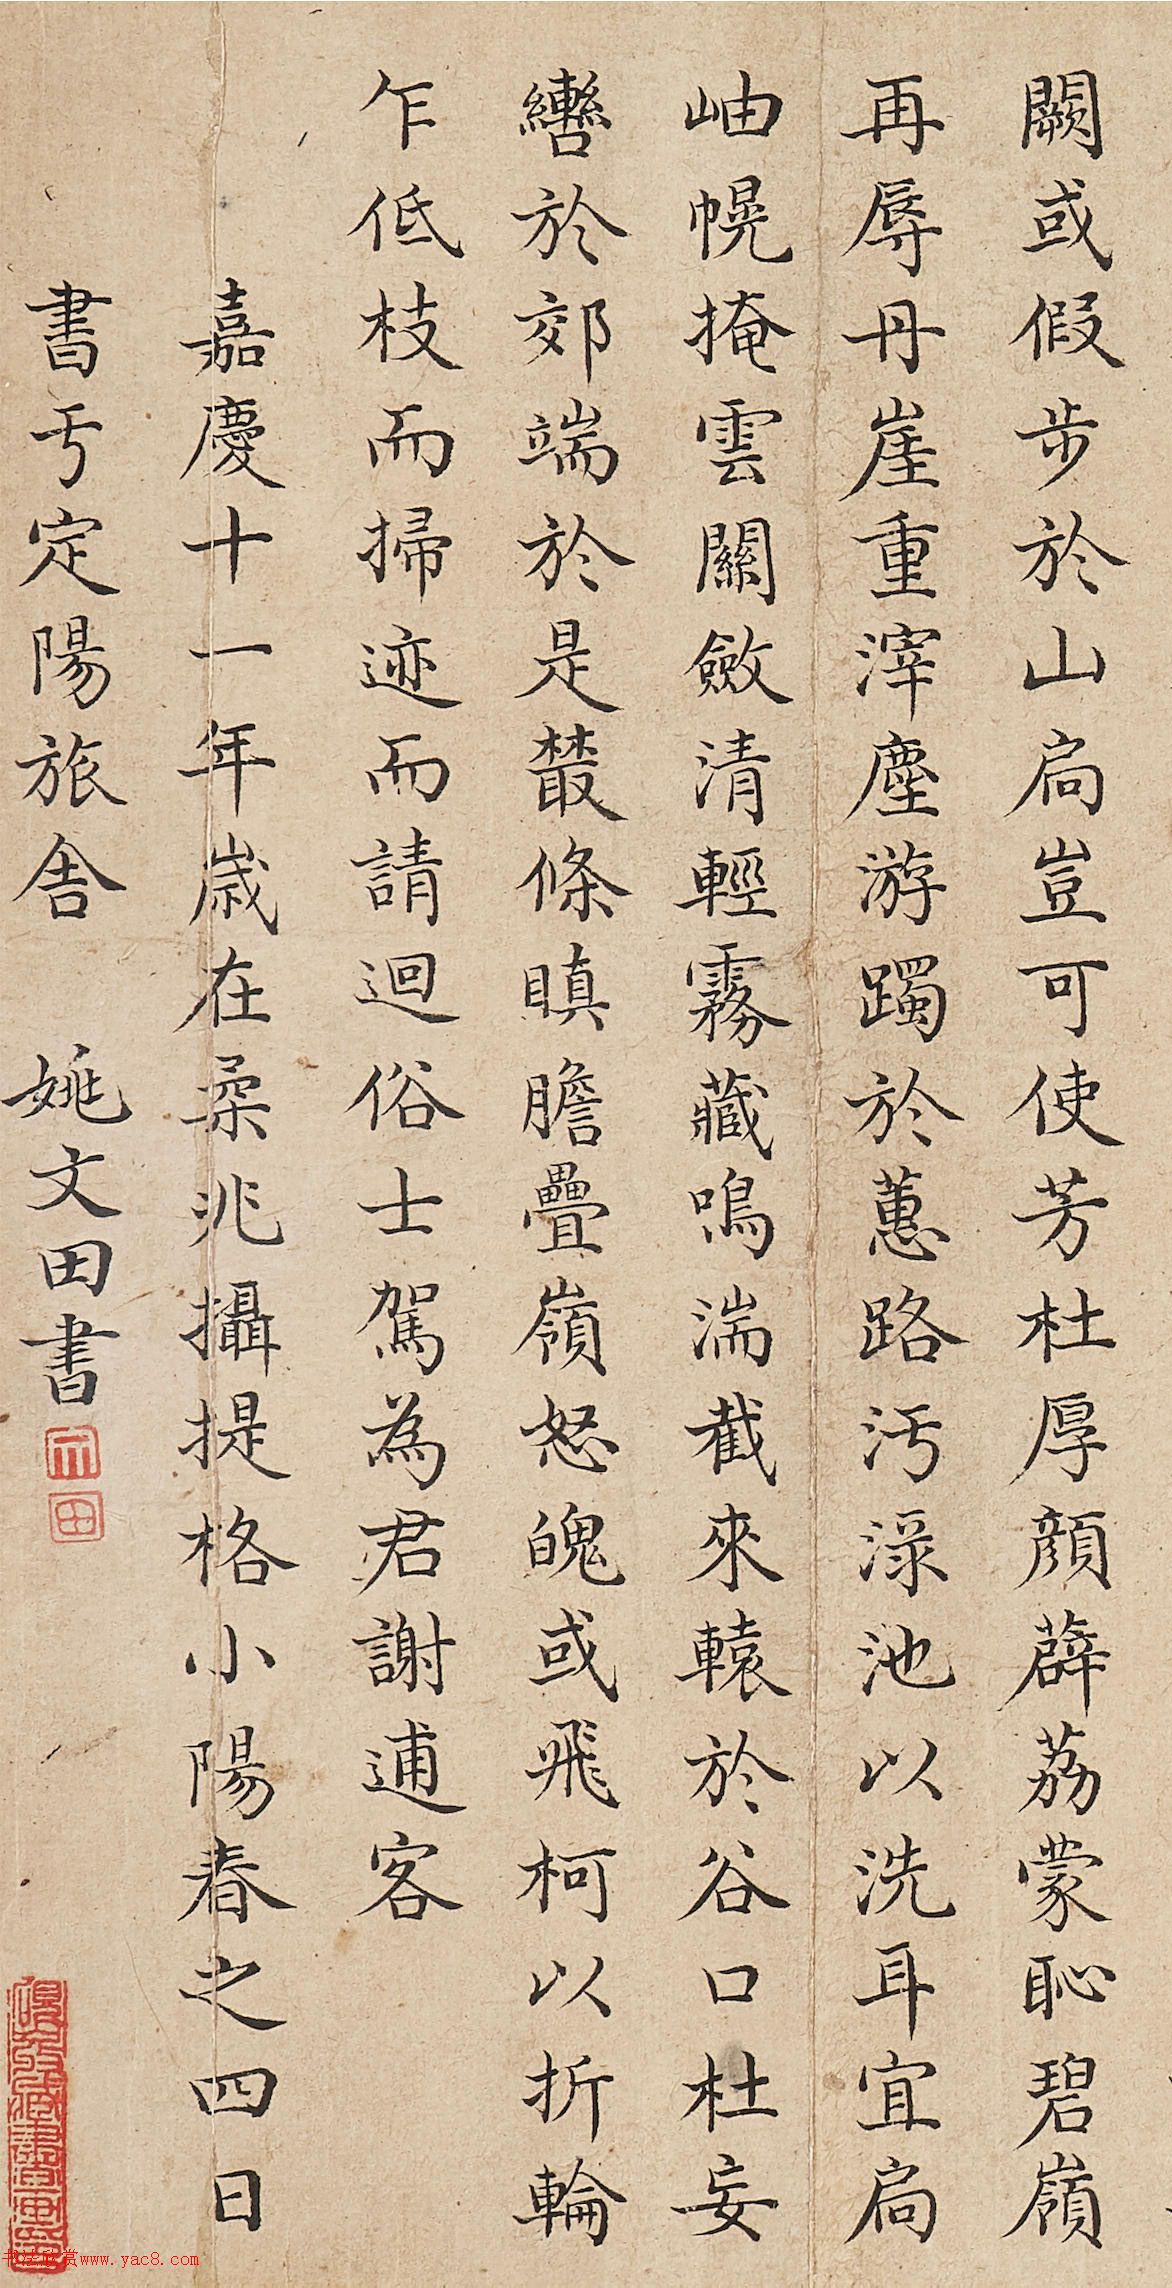 闕或假步於山扃豈可使芳杜厚顏薜荔蒙恥碧嶺
再辱丹崖重滓塵游躅於蕙路汚淥池以洗耳宜扃
岫幌掩雲關斂清輕霧藏鳴湍截來轅於谷口杜妄
轡於郊端於是叢條瞋膽疊嶺怒魄或飛柯以折輪
乍低枝而掃迹而請迴俗士駕為君謝逋客
嘉慶十一年歲在柔兆攝提格小陽春之四日
書于定陽旅舍 姚文田書
文田
书法欣赏www.yac8.com